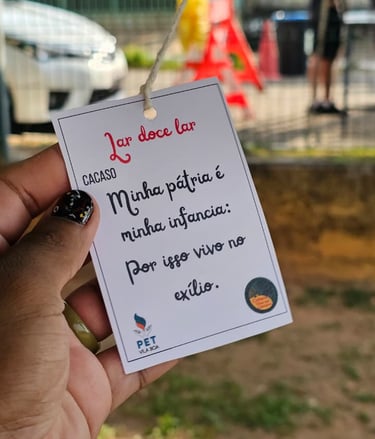 Lar doce lar
CACASO
Minha pátria é
minha infancia:
Por isso vivo no
exílio.
PET
VILA BOA